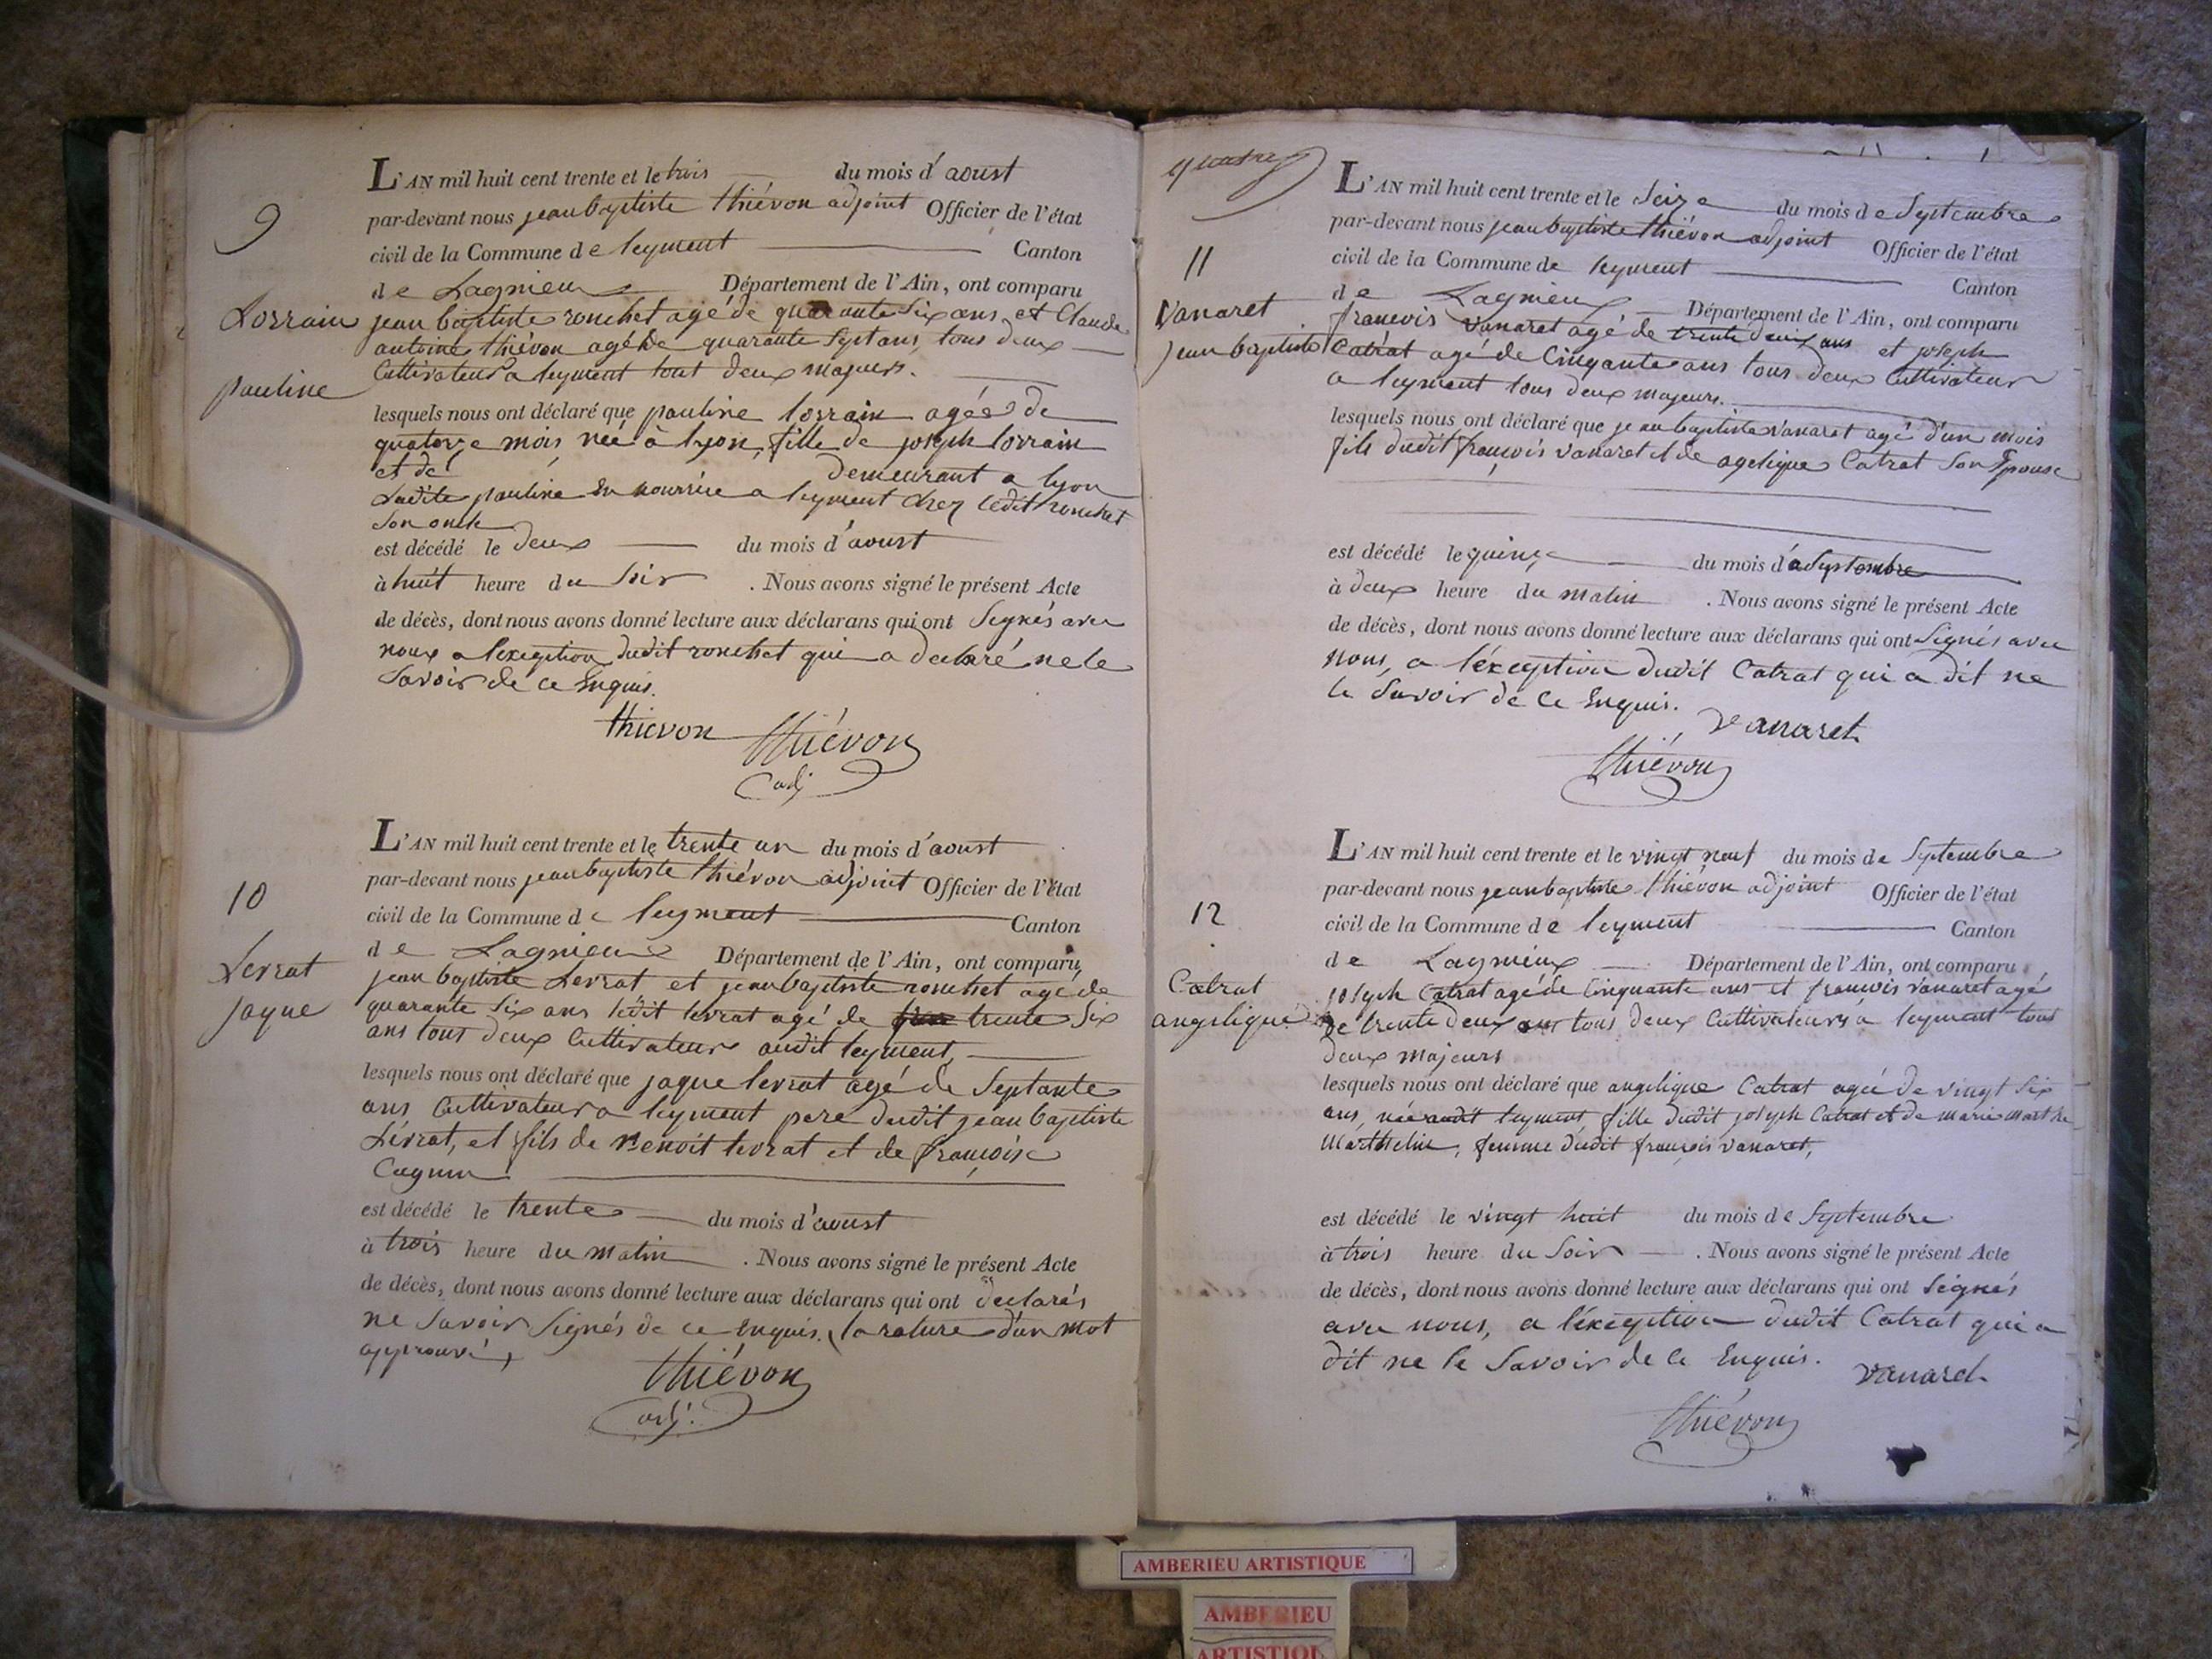 9
Lorrain
pauline
L'AN mil huit cent trente et le trois du mois d'aoust
par-devant nous jean baptiste thiévon adjoint Officier de l'état
civil de la Commune de leyment Canton
de Lagnieu Département de l'Ain, ont comparu
jean baptiste ronchet agé de quarante six ans, et Claude
antoine thiévon agé de quarante sept ans, tous deux
Cultivateurs a leyment tout deux majeurs.
lesquels nous ont déclaré que pauline lorrain agée de
quatorze mois, née à lyon, fille de joseph lorrain
et de demeurant a lyon
Ladite pauline en nourrice a leyment chez ledit ronchet
son oncle
est décédé le deux du mois d'aoust
à huit heure du soir . Nous avons signé le présent Acte
de décès, dont nous avons donné lecture aux déclarans qui ont signés avec
nous a l'exception dudit ronchet qui a declaré ne le
Savoir de ce Enquis.
thievon thiévon
adj
10
Levrat
jaque
L'AN mil huit cent trente et le trente un du mois d'aoust
par-devant nous jean baptiste thiévon adjoint Officier de l'état
civil de la Commune de leyment Canton
de Lagnieu Département de l'Ain, ont comparu
jean baptiste Levrat et jean baptiste ronchet agé de
quarante six ans ledit levrat agé de trente six
ans tous deux Cultivateurs audit leyment,
lesquels nous ont déclaré que jaque levrat agé de Septante
ans Cultivateur a leyment pere dudit jean baptiste
Lévrat, et fils de Benoit levrat et de françoise
est décédé le trente du mois d'aoust
à trois heure du matin . Nous avons signé le présent Acte
de décès, dont nous avons donné lecture aux déclarans qui ont declarés
ne Savoir Signés de ce Enquis. la rature d'un mot
approuvé,
thiévon
adj.
quatre
11
Vanaret
jean baptiste
L'AN mil huit cent trente et le Seize du mois de Septembre
par-devant nous jean baptiste thiévon adjoint Officier de l'état
civil de la Commune de leyment Canton
de Lagnieux Département de l'Ain, ont comparu
francois vanaret agé de trente deux ans et joseph
Catrat agé de Cinquante ans tous deux Cultivateurs
a leyment tous deux majeurs.
lesquels nous ont déclaré que jean baptiste vanaret agé d'un mois
fils dudit françois vanaret et de agelique Catrat Son Epouse
est décédé le quinze du mois d'a Septembre
à deux heure du matin . Nous avons signé le présent Acte
de décès, dont nous avons donné lecture aux déclarans qui ont Signés avec
nous, a l'éxception dudit Catrat qui a dit ne
le Savoir de ce Enquis.
Vanaret
thiévon
12
Catrat
angelique
L'AN mil huit cent trente et le vingt neuf du mois de Septembre
par-devant nous jean baptiste thiévon adjoint Officier de l'état
civil de la Commune de leyment Canton
de Lagnieux Département de l'Ain, ont comparu
joseph Catrat agé de Cinquante ans et francois vanaret agé
de trente deux ans tous deux Cultivateurs a leyment tous
deux majeurs
lesquels nous ont déclaré que angelique Catrat agée de vingt six
ans, née audit leyment, fille dudit joseph Catrat et de marie marthe
Marthelin, femme dudit françois vanaret,
est décédé le vingt huit du mois de Septembre
à trois heure du Soir . Nous avons signé le présent Acte
de décès, dont nous avons donné lecture aux déclarans qui ont Signés
avec nous, a l'éxception dudit Catrat qui a
dit ne le Savoir de ce Enquis.
vanaret
thiévon
AMBERIEU ARTISTIQUE
AMBERIEU
ARTISTIQU